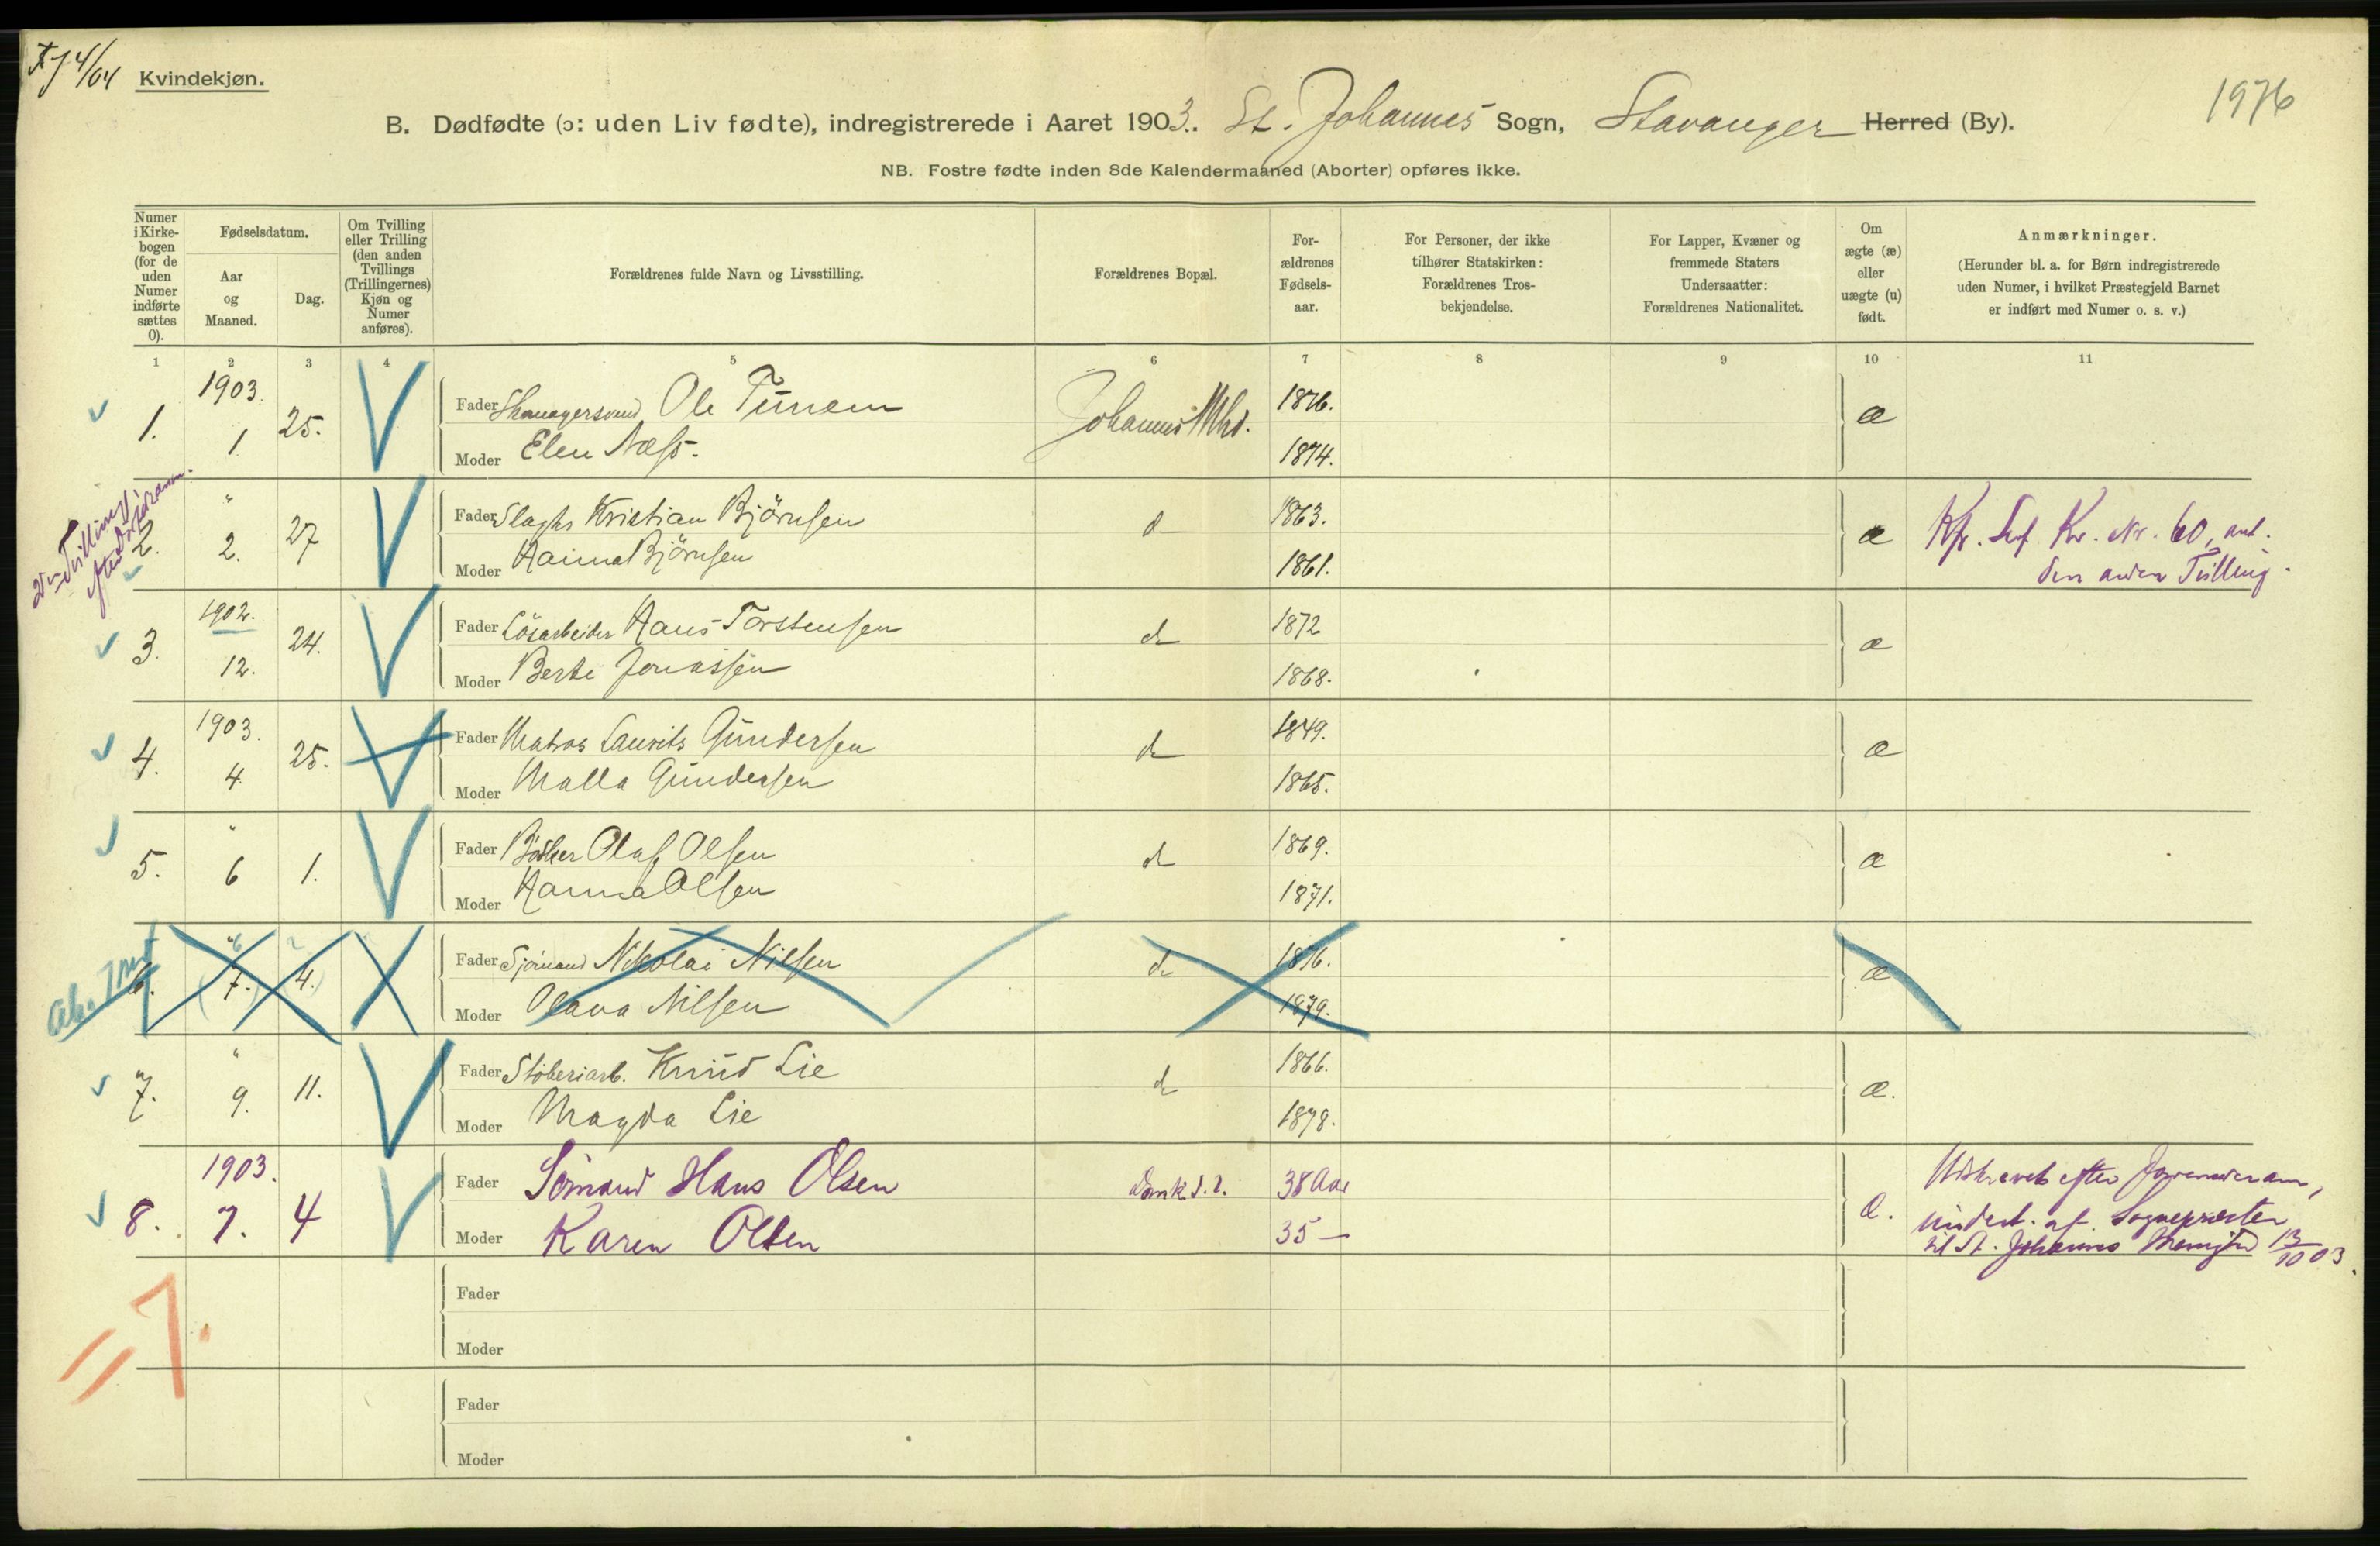 4/04 Kvindekjøn.
1976
B. Dødfødte (ɔ: uden Liv fødte), indregistrerede i Aaret 1903. St. Johannes Sogn, Stavanger Herred (By).
NB. Fostre fødte inden 8de Kalendermaaned (Aborter) opføres ikke.
Numer i Kirke- bogen (for de uden Numer indførte sættes 0).
Fødselsdatum.
Aar og Maaned.
Dag.
Om Tvilling eller Trilling (den anden Tvillings (Trillingernes) Kjøn og Numer anføres).
Forældrenes fulde Navn og Livsstilling.
Forældrenes Bopæl.
For- ældrenes Fødsels- aar.
For Personer, der ikke tilhører Statskirken: Forældrenes Tros- bekjendelse.
For Lapper, Kvæner og fremmede Staters Undersaatter: Forældrenes Nationalitet.
Om ægte (æ) eller uægte (u) født.
Anmærkninger.
(Herunder bl. a. for Børn indregistrerede uden Numer, i hvilket Præstegjeld Barnet er indført med Numer o. s. v.)
1 2 3 4 5 6 7 8 9 10 11
1. 1903. 1 25. Fader Ole Tunem Johannes Mhd. 1876. æ
Moder Elen Næss. 1874.
Tvilling
2. " 2. 27 Fader Kristian Björnsen d 1863. æ Kfr. Lev. Kv. Nr. 60, ant.
Moder Hanna Björnsen 1861. den anden Tvilling.
3. 1902. 12. 24. Fader Lösarbeider Hans Torstensen d 1872 æ
Moder Berte Jonassen 1868.
4. 1903. 4. 25. Fader Matros Laurits Gundersen d 1849. æ
Moder Malla Gundersen 1865.
5. " 6 1. Fader Bödker Olaf Olsen d 1869. æ
Moder Hanna Olsen 1871.
6. " 7. 4. Fader Sjömand Nikolai Nilsen d 1876. æ
Moder Olava Nilsen 1879.
7. " 9. 11. Fader Stöberiarb. Knud Lie d 1866. æ.
Moder Magda Lie 1878.
8. 1903. 7. 4 Fader Sömand Hans Olsen 38 Aar æ. Udskrevet efter
Moder Karen Olsen 35 — af Sognepresten
til St. Johannes Menighed 13/10 03.
= 7.
Fader
Moder
Fader
Moder